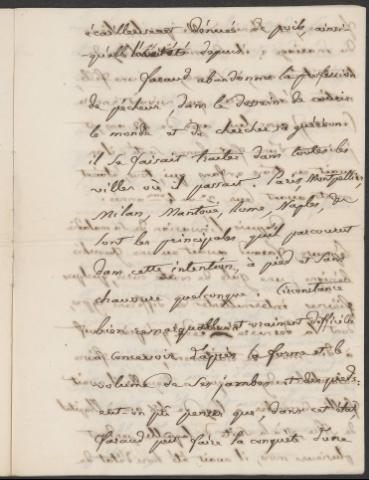 écailleuses et dénués de poils, ainsi
qu'elle l'a été depuis.
Faraud abandonne la profession
de pêcheur dans le dessein de courir
le monde et de chercher sa guérison.
il se faisait traiter dans toutes les
villes où il passait. Paris, Montpellier,
Milan, Mantoue, Rome, Naples, &c
sont les principales qu'il parcourut
dans cette intention, à pied et sans
chaussure quelconque. Circonstance
bien remarquable et vraiment difficile
à concevoir d'après la forme et le
volume de ses jambes et des pieds.
et on pense que dans cet état,
Faraud put faire la conquête d'une